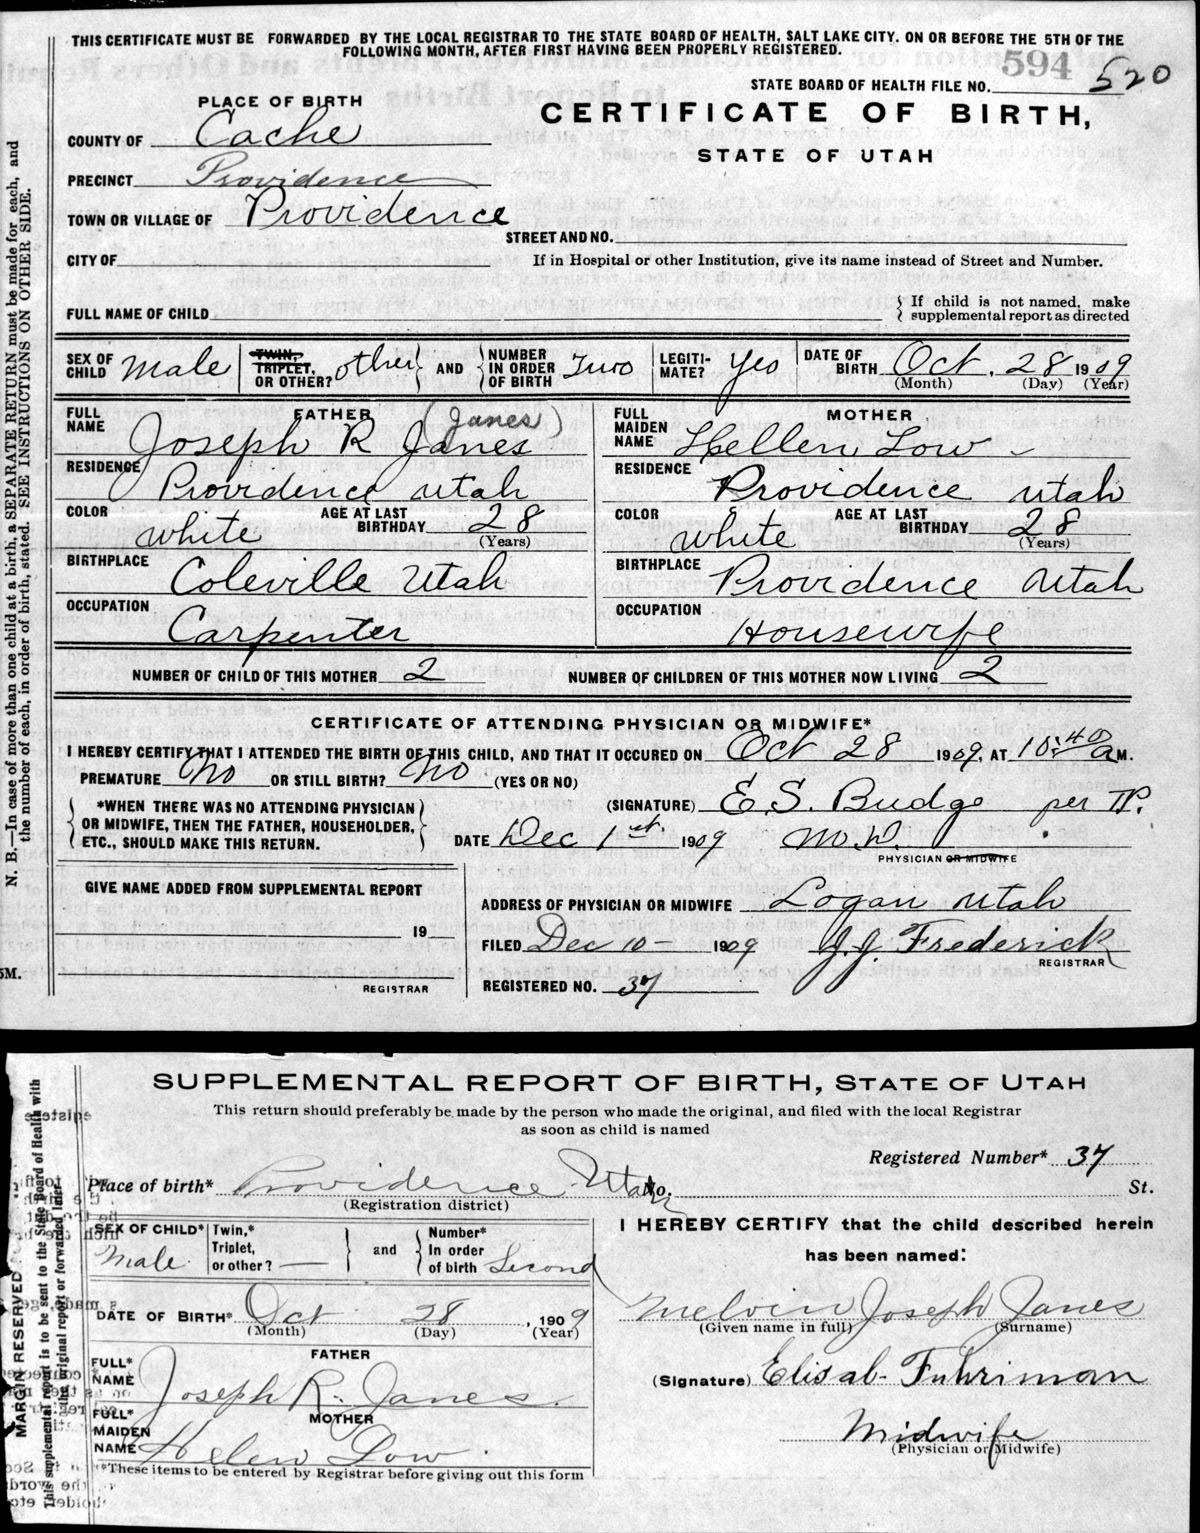 THIS CERTIFICATE MUST BE FORWARDED BY THE LOCAL REGISTRAR TO THE STATE BOARD OF HEALTH, SALT LAKE CITY. ON OR BEFORE THE 5TH OF THE
FOLLOWING MONTH, AFTER FIRST HAVING BEEN PROPERLY REGISTERED.
594
STATE BOARD OF HEALTH FILE NO. 520
PLACE OF BIRTH
CERTIFICATE OF BIRTH,
STATE OF UTAH
COUNTY OF Cache
PRECINCT Providence
TOWN OR VILLAGE OF Providence
STREET AND NO.
CITY OF
If in Hospital or other Institution, give its name instead of Street and Number.
FULL NAME OF CHILD
If child is not named, make
supplemental report as directed
SEX OF CHILD Male TWIN, TRIPLET, OR OTHER? other AND NUMBER IN ORDER OF BIRTH Two LEGITI-MATE? Yes DATE OF BIRTH Oct. 28 1909
(Month) (Day) (Year)
FATHER
(Janes)
FULL NAME Joseph R Janes
RESIDENCE Providence Utah
COLOR white AGE AT LAST BIRTHDAY 28 (Years)
BIRTHPLACE Coleville Utah
OCCUPATION Carpenter
MOTHER
FULL MAIDEN NAME Hellen Low
RESIDENCE Providence Utah
COLOR white AGE AT LAST BIRTHDAY 28 (Years)
BIRTHPLACE Providence Utah
OCCUPATION Housewife
NUMBER OF CHILD OF THIS MOTHER 2 NUMBER OF CHILDREN OF THIS MOTHER NOW LIVING 2
CERTIFICATE OF ATTENDING PHYSICIAN OR MIDWIFE*
I HEREBY CERTIFY THAT I ATTENDED THE BIRTH OF THIS CHILD, AND THAT IT OCCURED ON Oct 28 1909, AT 10:40 a M.
PREMATURE No OR STILL BIRTH? No (YES OR NO)
*WHEN THERE WAS NO ATTENDING PHYSICIAN
OR MIDWIFE, THEN THE FATHER, HOUSEHOLDER,
ETC., SHOULD MAKE THIS RETURN.
(SIGNATURE) E.S. Budge per P.
DATE Dec 1st. 1909 M.D.
PHYSICIAN OR MIDWIFE
GIVE NAME ADDED FROM SUPPLEMENTAL REPORT
19
REGISTRAR
ADDRESS OF PHYSICIAN OR MIDWIFE Logan Utah
FILED Dec 10- 1909 J.J. Frederick
REGISTRAR
REGISTERED NO. 37
N. B.—In case of more than one child at a birth, a SEPARATE RETURN must be made for each, and
the number of each, in order of birth, stated. SEE INSTRUCTIONS ON OTHER SIDE.
5M.
SUPPLEMENTAL REPORT OF BIRTH, STATE OF UTAH
This return should preferably be made by the person who made the original, and filed with the local Registrar
as soon as child is named
Registered Number* 37
Place of birth* Providence Utah No. St.
(Registration district)
SEX OF CHILD* Male Twin,* Triplet, or other? — and Number* In order of birth Second
DATE OF BIRTH* Oct 28, 1909
(Month) (Day) (Year)
FATHER
FULL* NAME Joseph R. Janes.
MOTHER
FULL* MAIDEN NAME Helen Low.
*These items to be entered by Registrar before giving out this form
I HEREBY CERTIFY that the child described herein
has been named:
Melvin Joseph Janes
(Given name in full) (Surname)
(Signature) Elisab- Fuhriman
Midwife
(Physician or Midwife)
MARGIN RESERVED
This supplemental report is to be sent to the State Board of Health with
the original report or forwarded later.